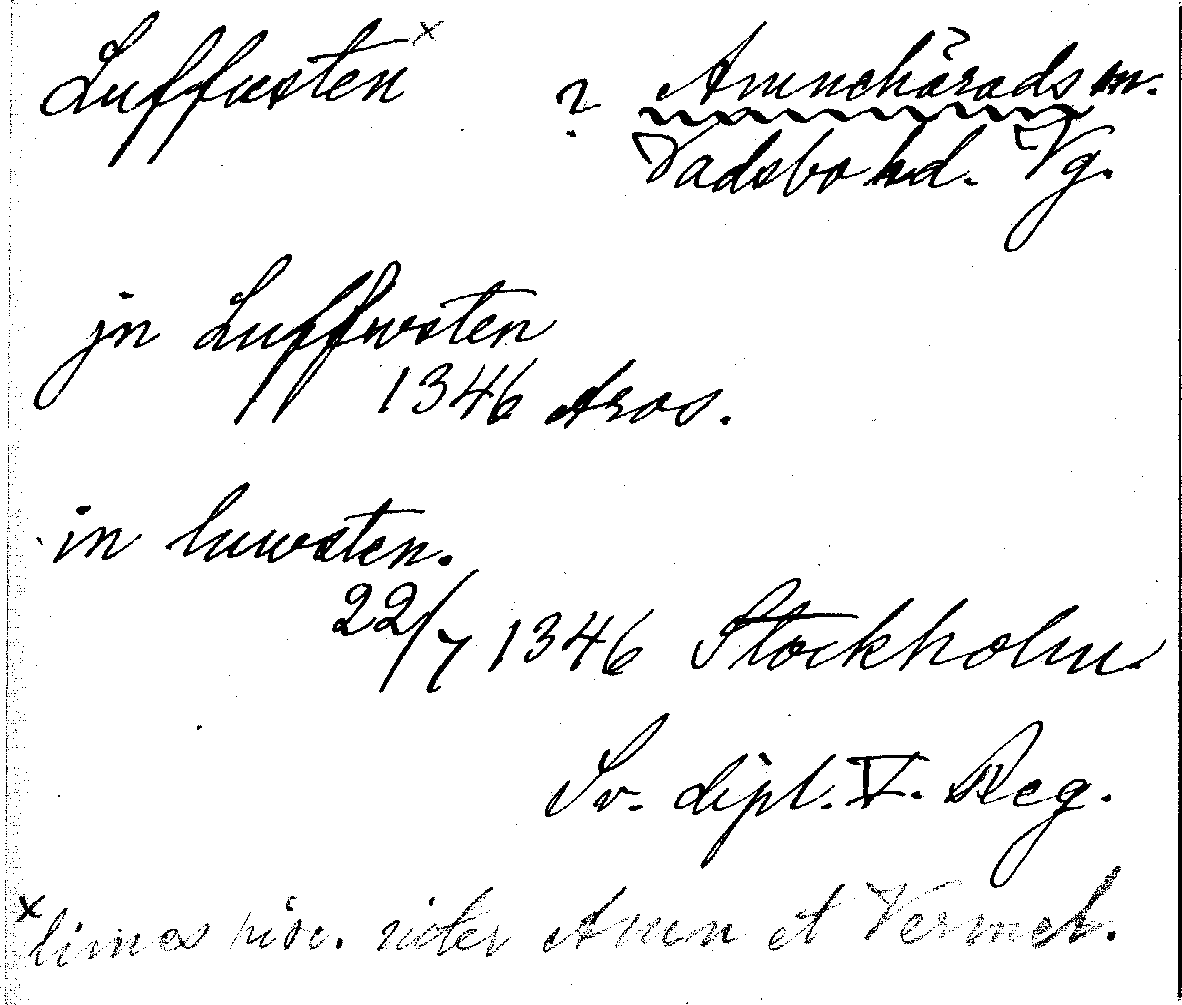 Luffwsten x ? Amnehärads sn.
Vadsbo hd. Vg.
jn Luffwsten
1346 Aros.
in luwsten.
22/7 1346 Stockholm
Sv. dipl. V. Reg.
x limes inter Amn et Vermel.